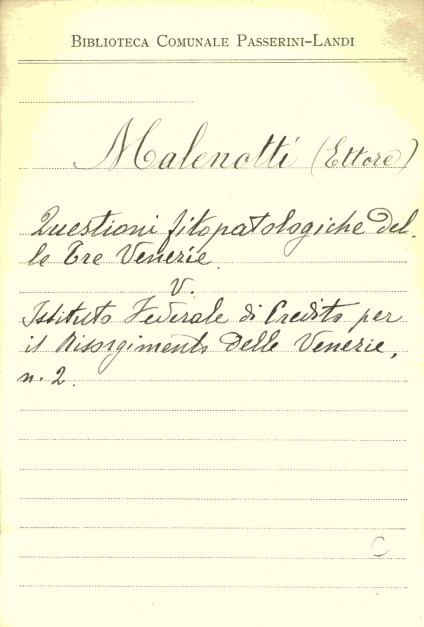 BIBLIOTECA COMUNALE PASSERINI-LANDI
Malenotti (Ettore)
Questioni fitopatologiche del-
le Tre Venezie.
V.
Istituto Federale di Credito per
il Risorgimento delle Venezie,
n. 2.
C